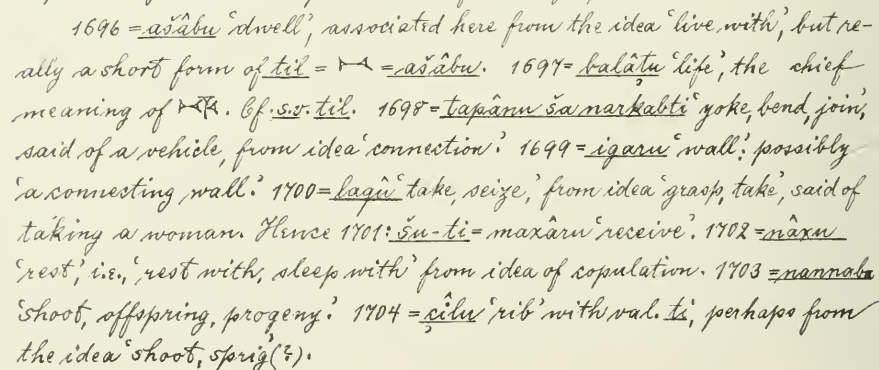 1696 = ašâbu ‘dwell’, associated here from the idea ‘live with’, but re-
ally a short form of til = 𒁁 = ašâbu. 1697 = balâṭu ‘life’, the chief
meaning of . Cf. s.v. til. 1698 = tapânu ša narkabti ‘yoke, bend, join’,
said of a vehicle, from idea ‘connection’. 1699 = igaru ‘wall’; possibly
‘a connecting wall’. 1700 = laqû ‘take, seize’, from idea ‘grasp, take’, said of
taking a woman. Hence 1701: šu-ti = maxâru ‘receive’. 1702 = nâxu
‘rest’, i.e., ‘rest with, sleep with’ from idea of copulation. 1703 = nannabu
‘shoot, offspring, progeny’. 1704 = çîlu ‘rib’ with val. ti, perhaps from
the idea ‘shoot, sprig’(?).